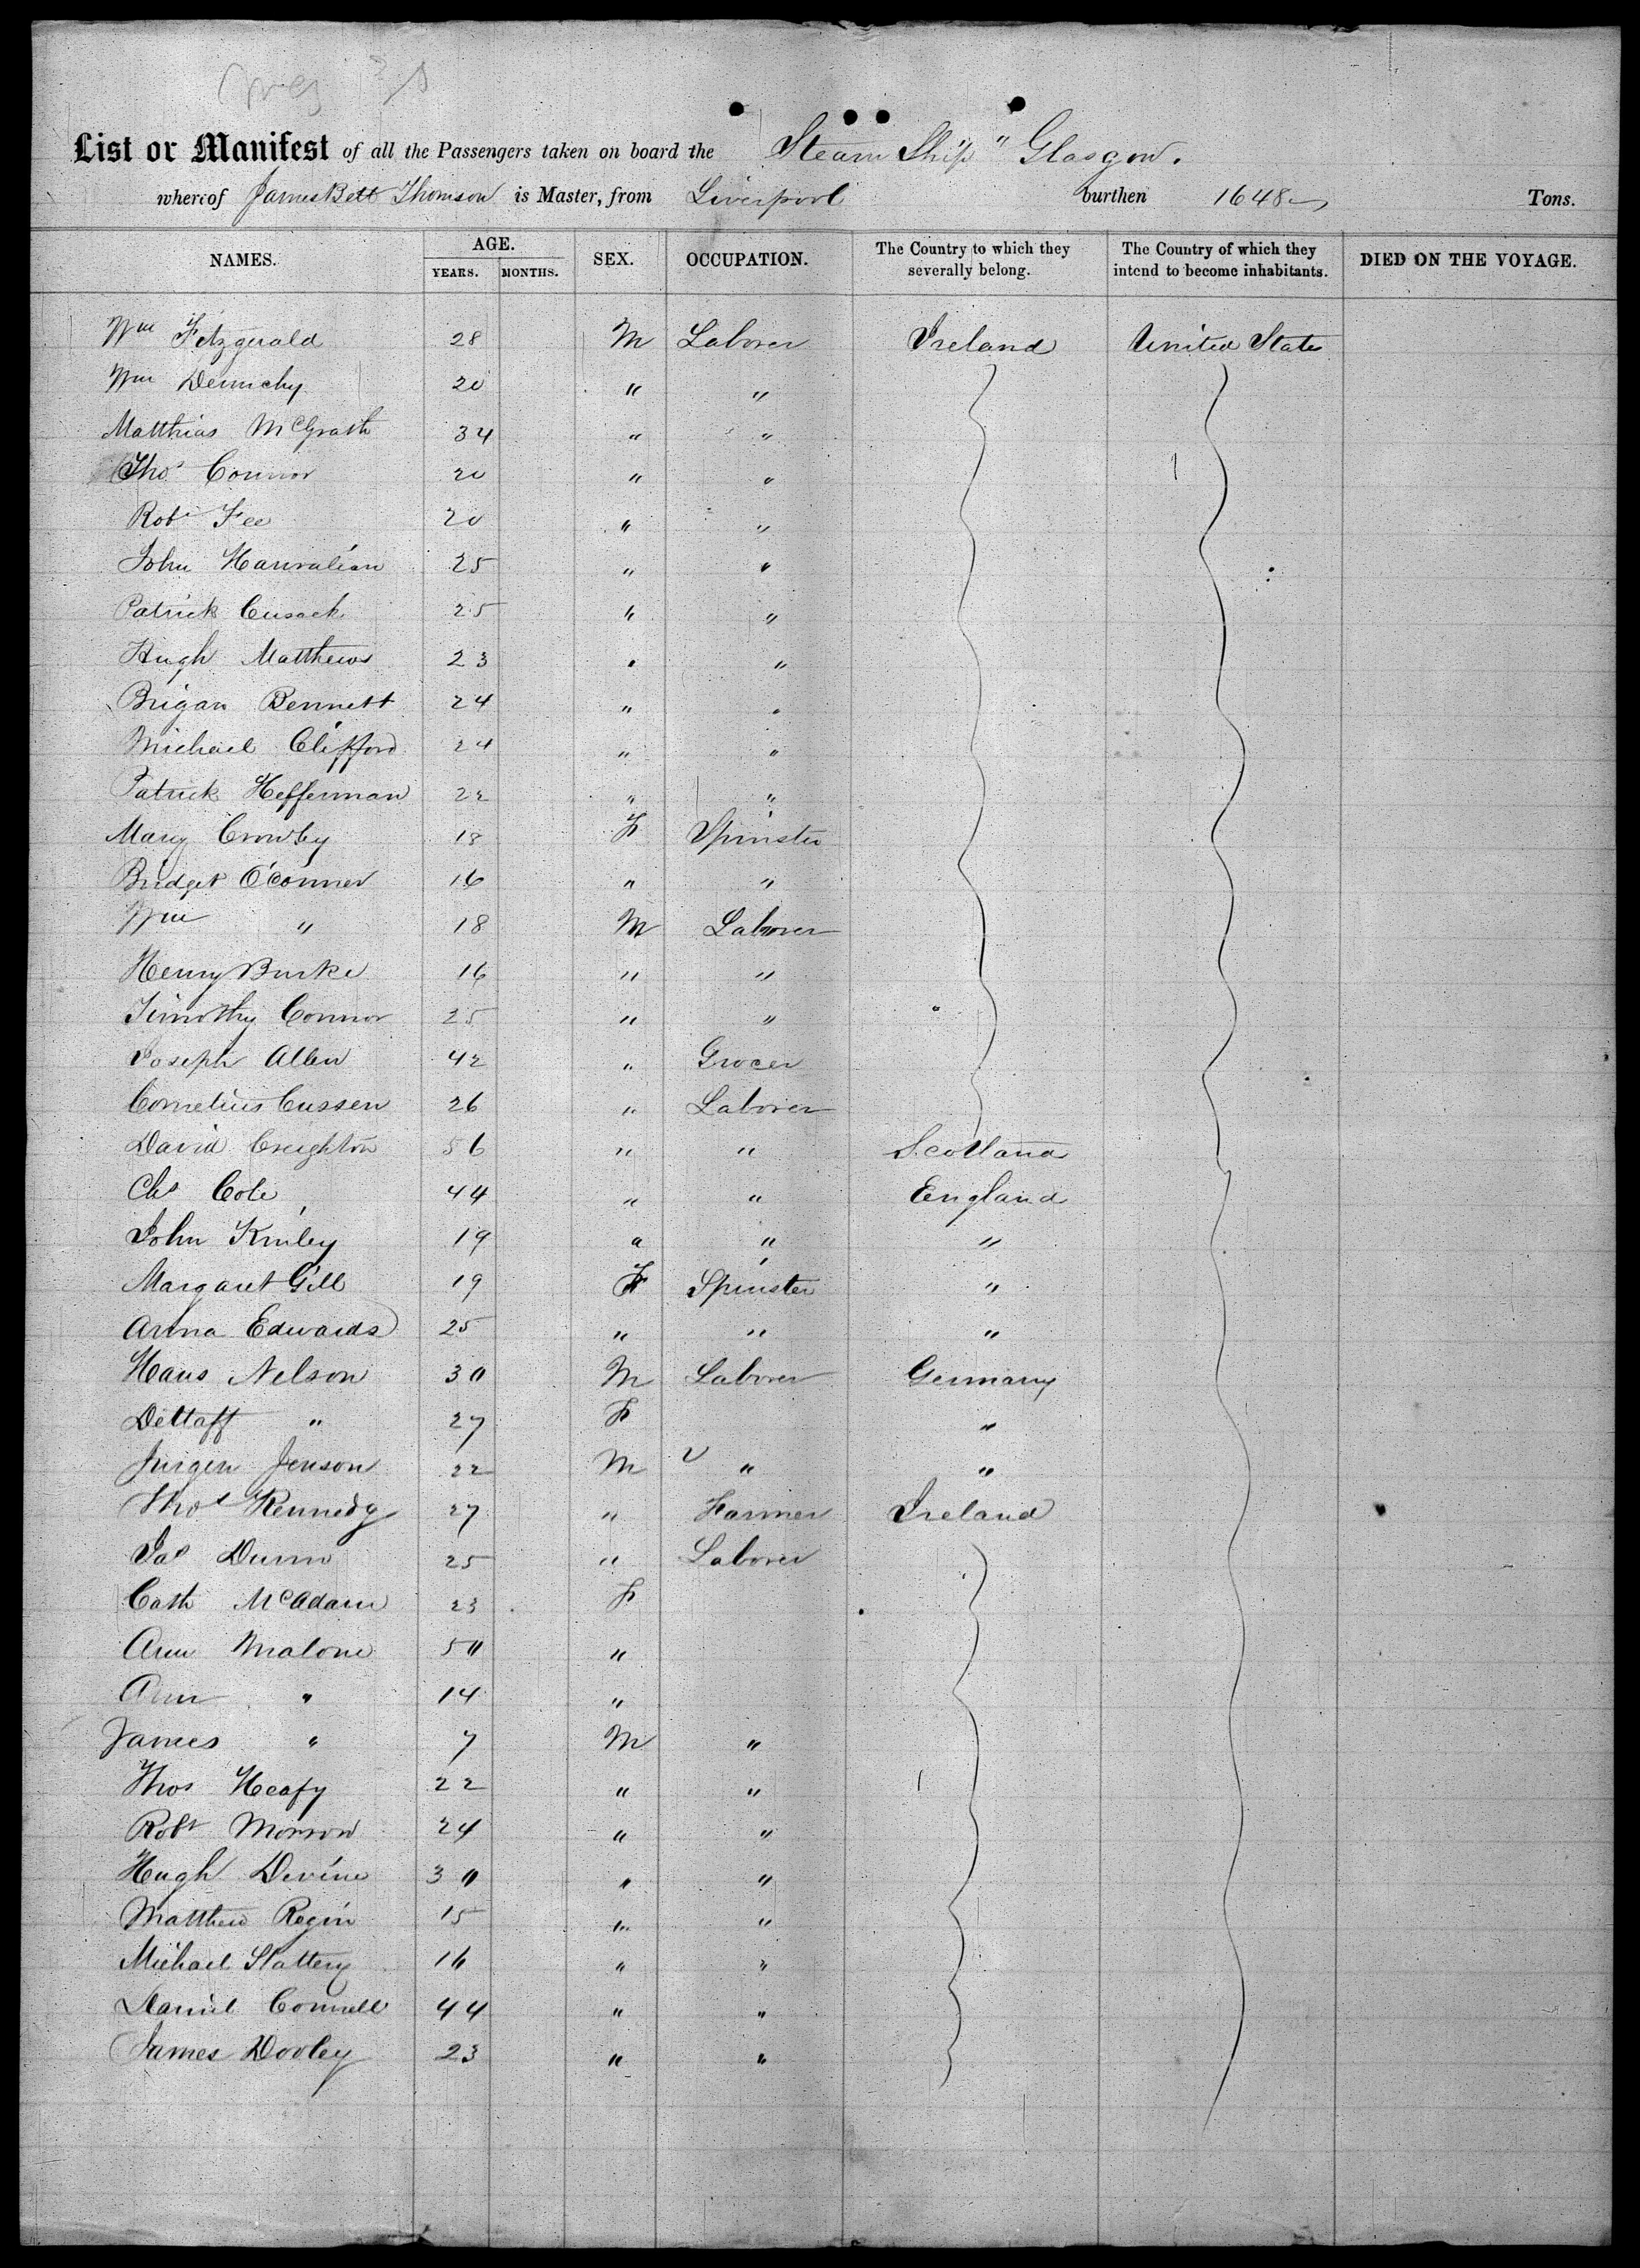 List or Manifest of all the Passengers taken on board the Steam Ship "Glasgow.
whereof James Bett Thomson is Master, from Liverpool burthen 1648 Tons.
NAMES. AGE. YEARS. MONTHS. SEX. OCCUPATION. The Country to which they severally belong. The Country of which they intend to become inhabitants. DIED ON THE VOYAGE.
Wm Fitzgerald 28 M Laborer Ireland United States
Wm Dennehy 20 " "
Matthias McGrath 34 " "
Thos Connor 20 " "
Robt Fee 20 " "
John 25 " "
Patrick Cusack 25 " "
Hugh Matthews 23 " "
Brigan Bennett 24 " "
Michael Clifford 24 " "
Patrick Hefferman 22 " "
Mary Crowley 18 F Spinster
Bridget O'Conner 16 " "
Wm " 18 M Laborer
Henry Burke 16 " "
Timothy Connor 25 " "
Joseph Allen 42 " Grocer
Cornelius Cussen 26 " Laborer
David Creighton 56 " " Scotland
Chs Cole 44 " " England
John Kinley 19 " " "
Margaret Gill 19 F Spinster "
Anna Edwards 25 " " "
Hans Nelson 30 M Laborer Germany
Dettaff " 27 F "
Jurgen Jenson 22 M " "
Thos Kennedy 27 " Farmer Ireland
Jas Dunn 25 " Laborer
Cath McAdam 23 F
Ann Malone 50 "
Ann " 14 "
James " 7 M "
Thos Heafy 22 " "
Robt Morrow 24 " "
Hugh Devine 30 " "
Matthew Regin 15 " "
Michael Slattery 16 " "
Daniel Connell 44 " "
James Dooley 23 " "